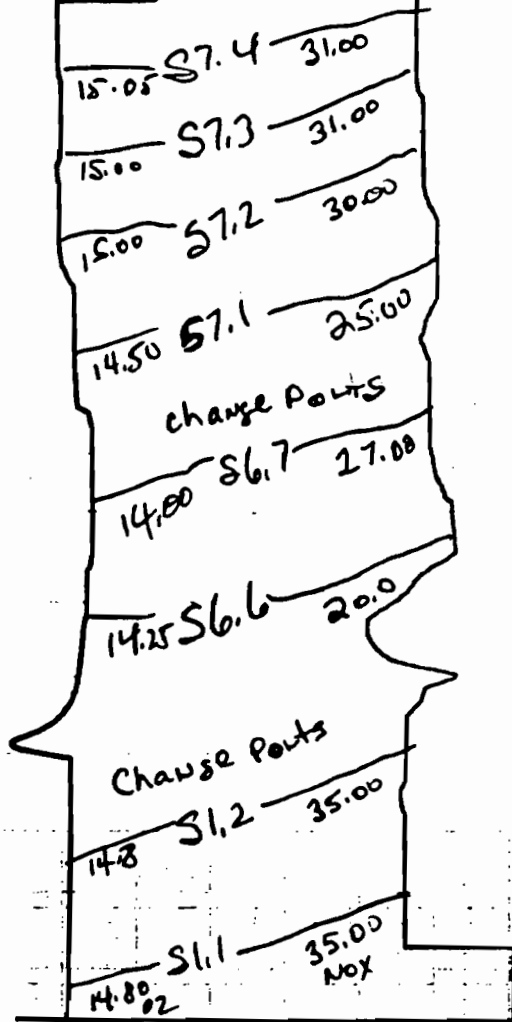 15.05 S7.4 31.00
15.00 S7.3 31.00
15.00 S7.2 30.00
14.50 S7.1 25.00
Change Ports
14.00 S6.7 27.00
14.25 S6.6 20.0
Change Ports
14.8 S1.2 35.00
14.80 S1.1 35.00
O2 NOX